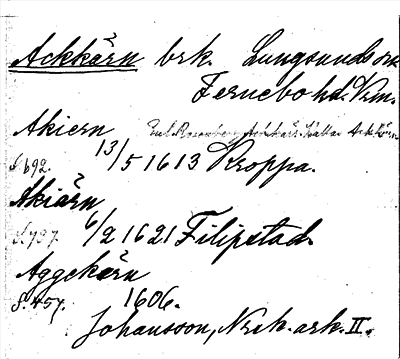 Ackkärn brk. Lungsunds sn
Fernebo hd. Vrm.
Akiern Enl. Rosenberg Ackkärr. Kallas Ackkärn
S. 692. 13/5 1613 Kroppa.
Akiärn
S. 737. 6/2 1621 Filipstad
Aggekärn
S. 457. 1606.
Johansson, Nrk. ark. II.